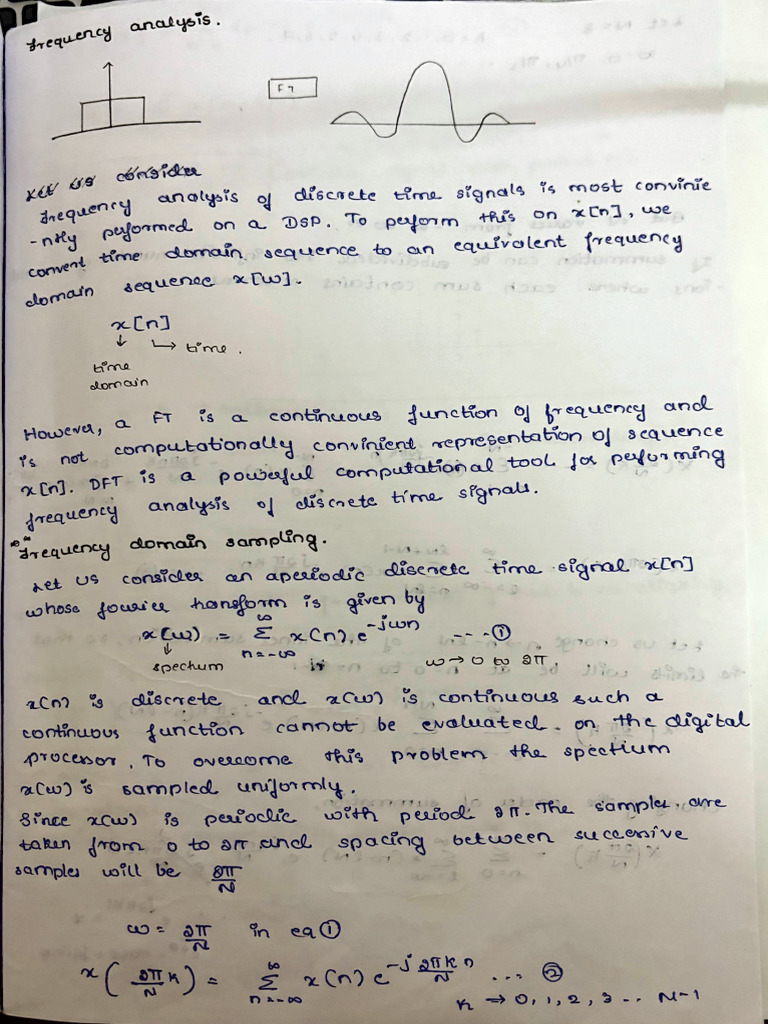 frequency analysis.
FT
Let us consider
frequency analysis of discrete time signals is most convinie
-ntly performed on a DSP. To perform this on x[n], we
convent time domain sequence to an equivalent frequency
domain sequence x[ω].
x[n]
↓ ↳ time.
time
domain
However, a FT is a continuous function of frequency and
is not computationally convinient representation of sequence
x[n]. DFT is a powerful computational tool for performing
frequency analysis of discrete time signals.
frequency domain sampling.
Let us consider an aperiodic discrete time signal x[n]
whose fourier transform is given by
x(ω) = ∞ Σ n=-∞ x(n).e^-jωn ---①
↓
spectum ω→0 to 2π.
x(n) is discrete and x(ω) is continuous such a
continuous function cannot be evaluated on the digital
processor. To overcome this problem the spectium
x(ω) is sampled uniformly.
Since x(ω) is periodic with period 2π. The samples are
taken from 0 to 2π and spacing between successive
samples will be 2π/N
ω = 2π/N in eq ①
x(2π/N k) = ∞ Σ n=-∞ x(n) e^-j 2πkn/N ... ②
k → 0, 1, 2, 3 .. N-1